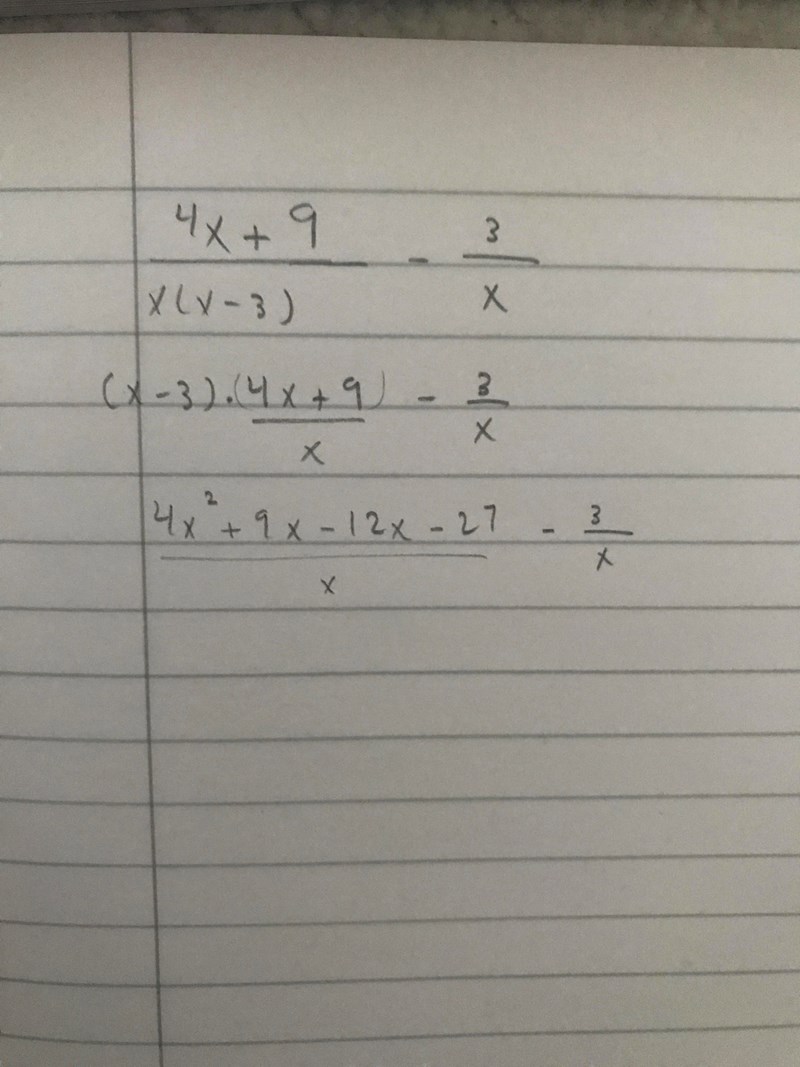 (4x + 9)/(x(x - 3)) - 3/x
(x - 3) · (4x + 9)/x - 3/x
(4x² + 9x - 12x - 27)/x - 3/x